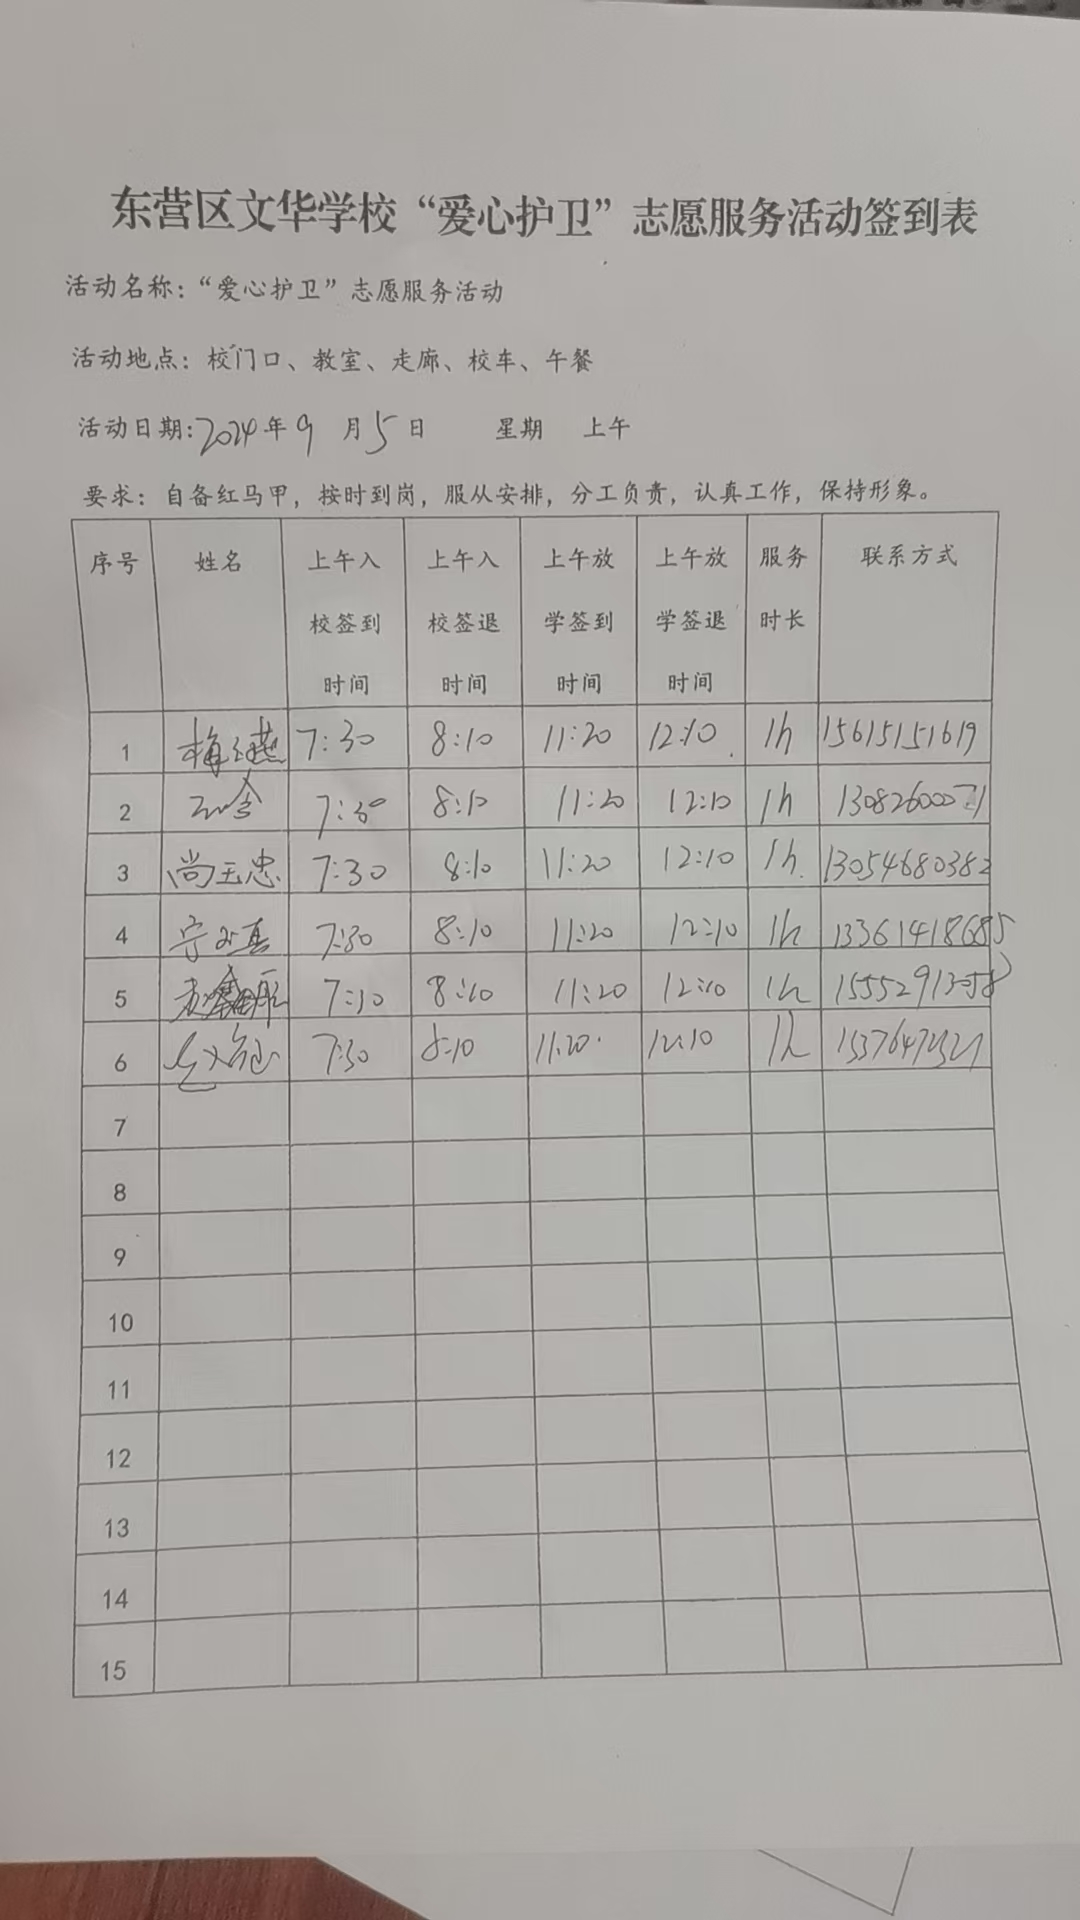 东营区文华学校“爱心护卫”志愿服务活动签到表
活动名称：“爱心护卫”志愿服务活动
活动地点：校门口、教室、走廊、校车、午餐
活动日期：2024年9月5日 星期 上午
要求：自备红马甲，按时到岗，服从安排，分工负责，认真工作，保持形象。
序号 姓名 上午入校签到时间 上午入校签退时间 上午放学签到时间 上午放学签退时间 服务时长 联系方式
1 7:30 8:10 11:20 12:10 1h 15615151619
2 7:30 8:10 11:20 12:10 1h
3 尚玉忠 7:30 8:10 11:20 12:10 1h 13054680382
4 7:30 8:10 11:20 12:10 1h 13361418685
5 8:10 11:20 12:10 1h
6 7:30 8:10 11:20 12:10 1h
7
8
9
10
11
12
13
14
15